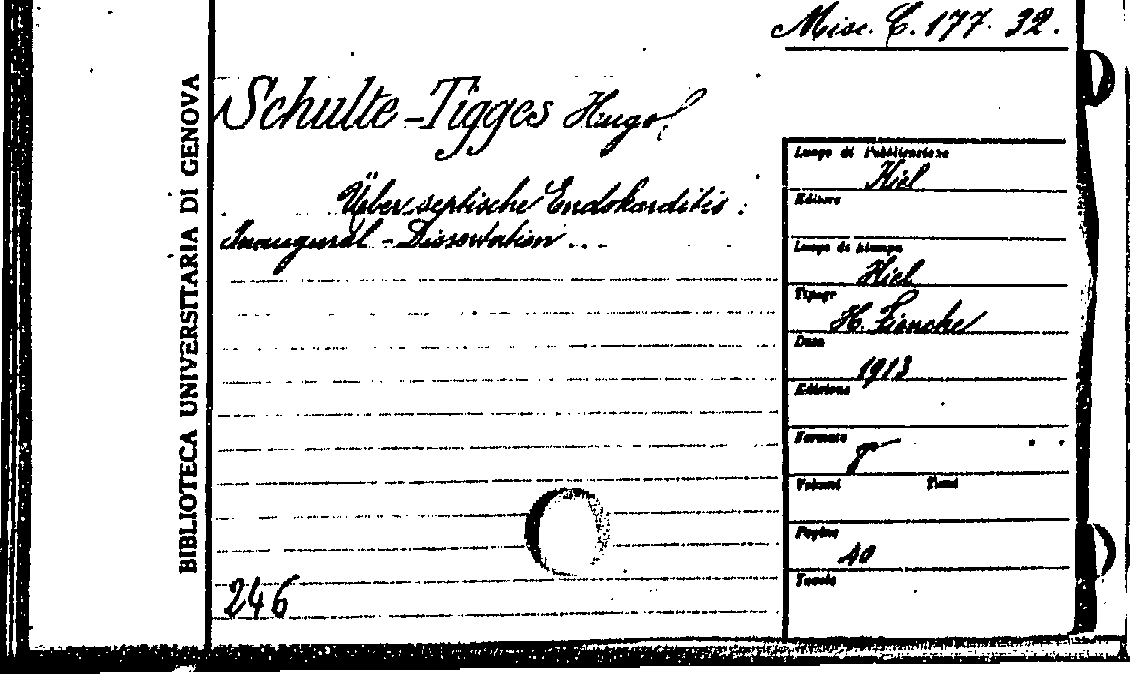 Misc. C. 177. 32.
BIBLIOTECA UNIVERSITARIA DI GENOVA
Schulte-Tigges Hugo.
Über septische Endokarditis :
Inaugural-Dissertation...
Luogo di Pubblicazione
Kiel
Editore
Luogo di stampa
Kiel
Tipogr
H. Fiencke
Data
1913
Edizione
Formato
8°
Volumi
Pagine
40
Tavole
246